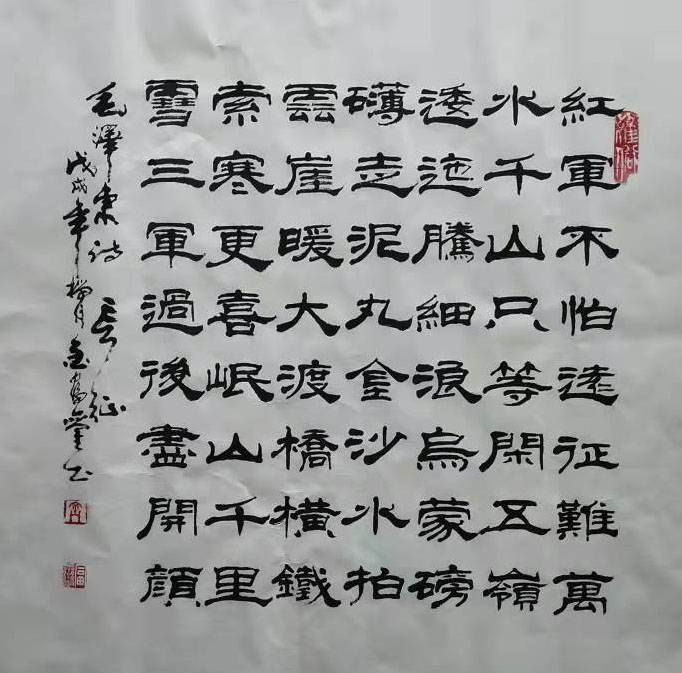 紅軍不怕遠征難萬
水千山只等閑五嶺
逶迤騰細浪烏蒙磅
礴走泥丸金沙水拍
雲崖暖大渡橋橫鐵
索寒更喜岷山千里
雪三軍過後盡開顔
毛澤東詩 長征
戊戌年